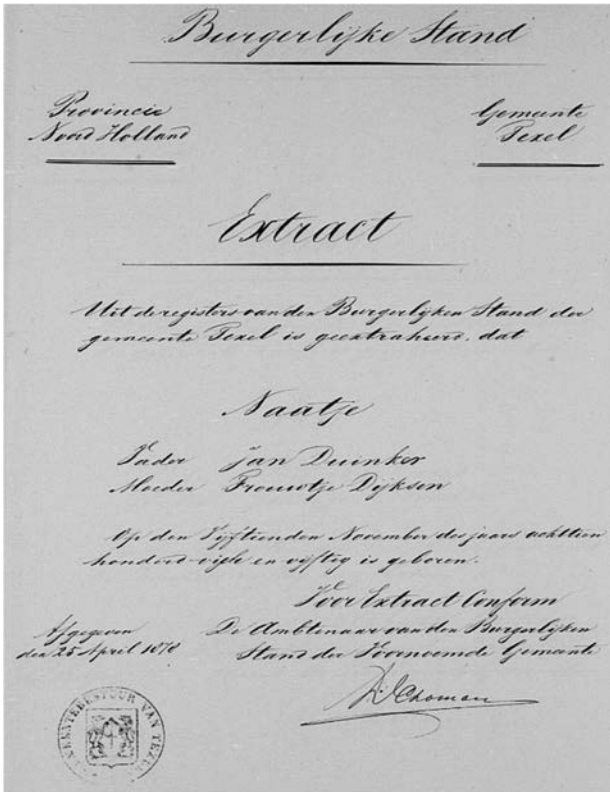 Burgerlijke Stand
Provincie
Noord Holland
Gemeente
Texel
Extract
Uit de registers van den Burgerlijken Stand der
gemeente Texel is geextraheerd, dat
Naatje
Vader Jan Duinker
Moeder Trouwtje Dijksen
Op den Vijftienden November des jaars achttien
honderd vijf en vijftig is geboren.
Voor Extract Conform
Afgegeven
den 25 April 1878
De Ambtenaar van den Burgerlijken
Stand der Voornoemde Gemeente
GEMEENTEBESTUUR VAN TEXEL